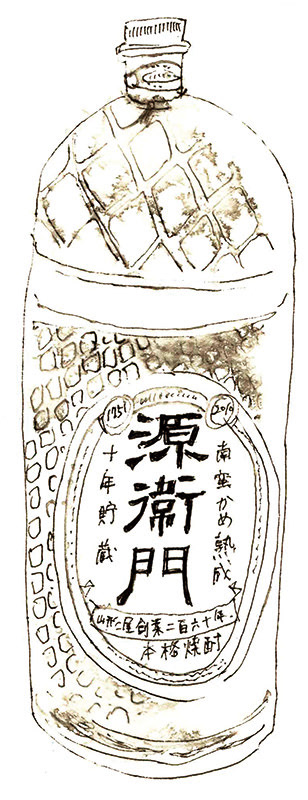 1751
2010
南蛮かめ熟成
源衛門
十年貯蔵
創業二百六十年
本格焼酎